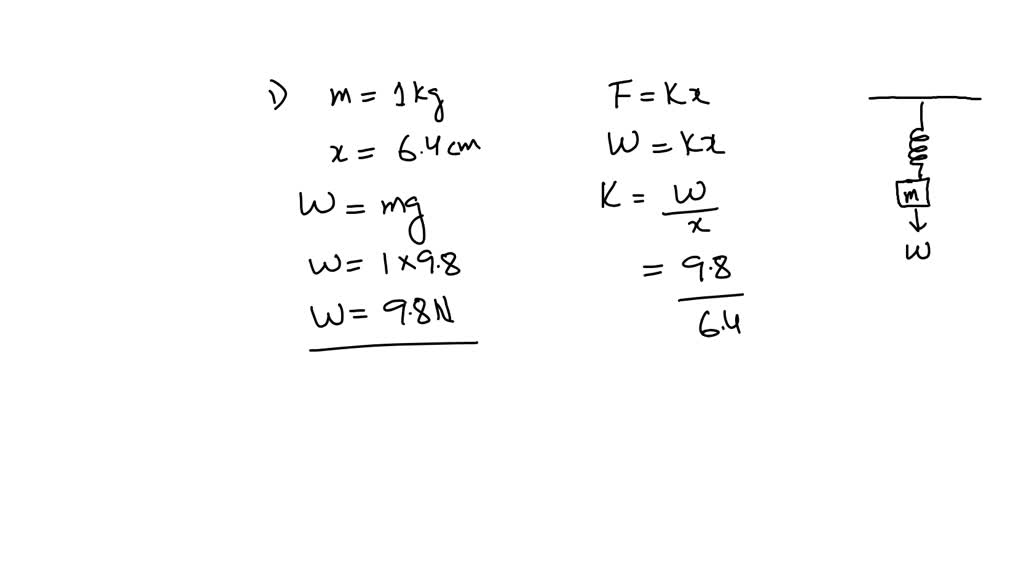 1) m = 1 kg
x = 6.4 cm
W = mg
W = 1 × 9.8
W = 9.8 N
F = Kx
W = Kx
K = W
x
= 9.8
6.4
m
W